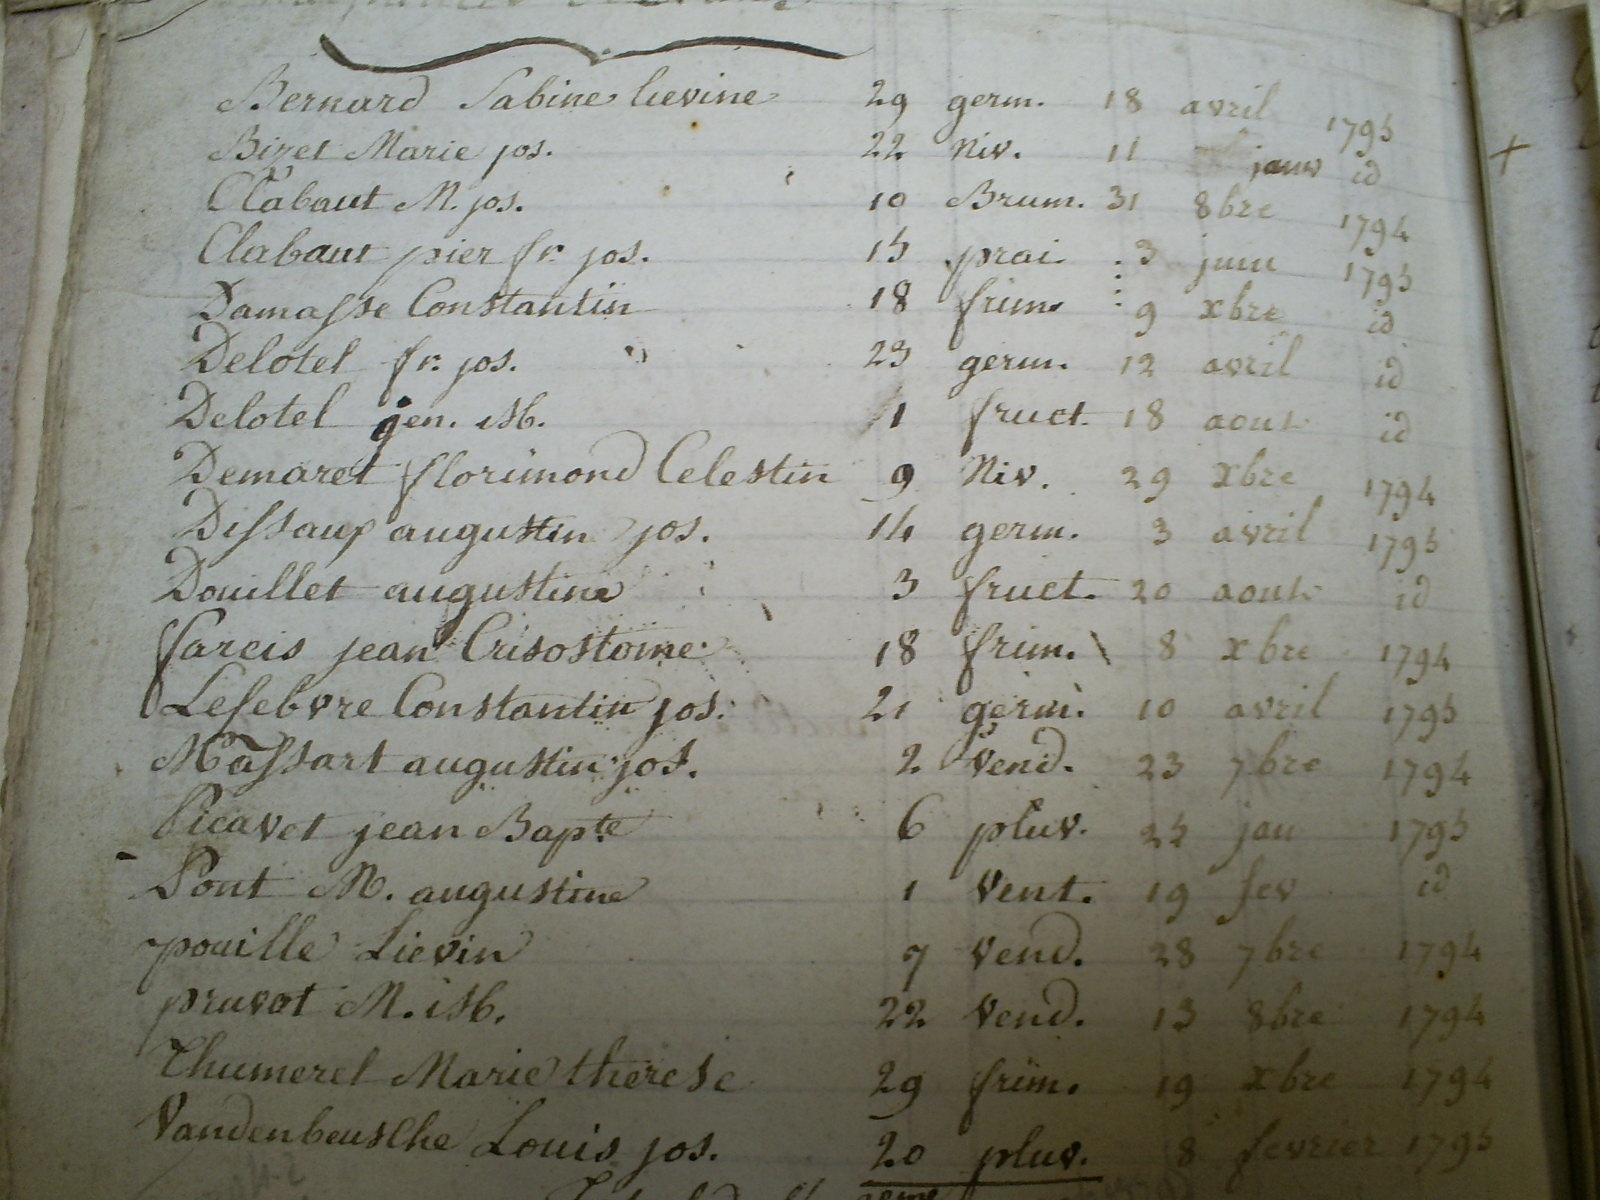 Bernard Sabine lievine 29 germ. 18 avril 1795
Bizet Marie jos. 22 Niv. 11 janv id
Clabaut M. jos. 10 Brum. 31 8bre 1794
Clabaut pier fr. jos. 15 prai. 3 juin 1795
Damasse Constantin 18 frim. 9 xbre id
Delotel fr. jos. 23 germ. 12 avril id
Delotel gen. isb. 1 fruct. 18 aout id
Demaret florimond Celestin 9 Niv. 29 xbre 1794
Dissaux augustin jos. 14 germ. 3 avril 1795
Douillet augustine 3 fruct. 20 aout id
farcis jean Crisostome 18 frim. 8 xbre 1794
Lefebvre Constantin jos. 21 germ. 10 avril 1795
Massart augustin jos. 2 Vend. 23 7bre 1794
Picavet jean Bapte 6 pluv. 25 jan 1795
Pont M. augustine 1 Vent. 19 fev id
pouille Lievin 7 Vend. 28 7bre 1794
pruvot M. isb. 22 Vend. 13 8bre 1794
Thumerel Marie therese 29 frim. 19 xbre 1794
Vandenbeusche Louis jos. 20 pluv. 8 fevrier 1795